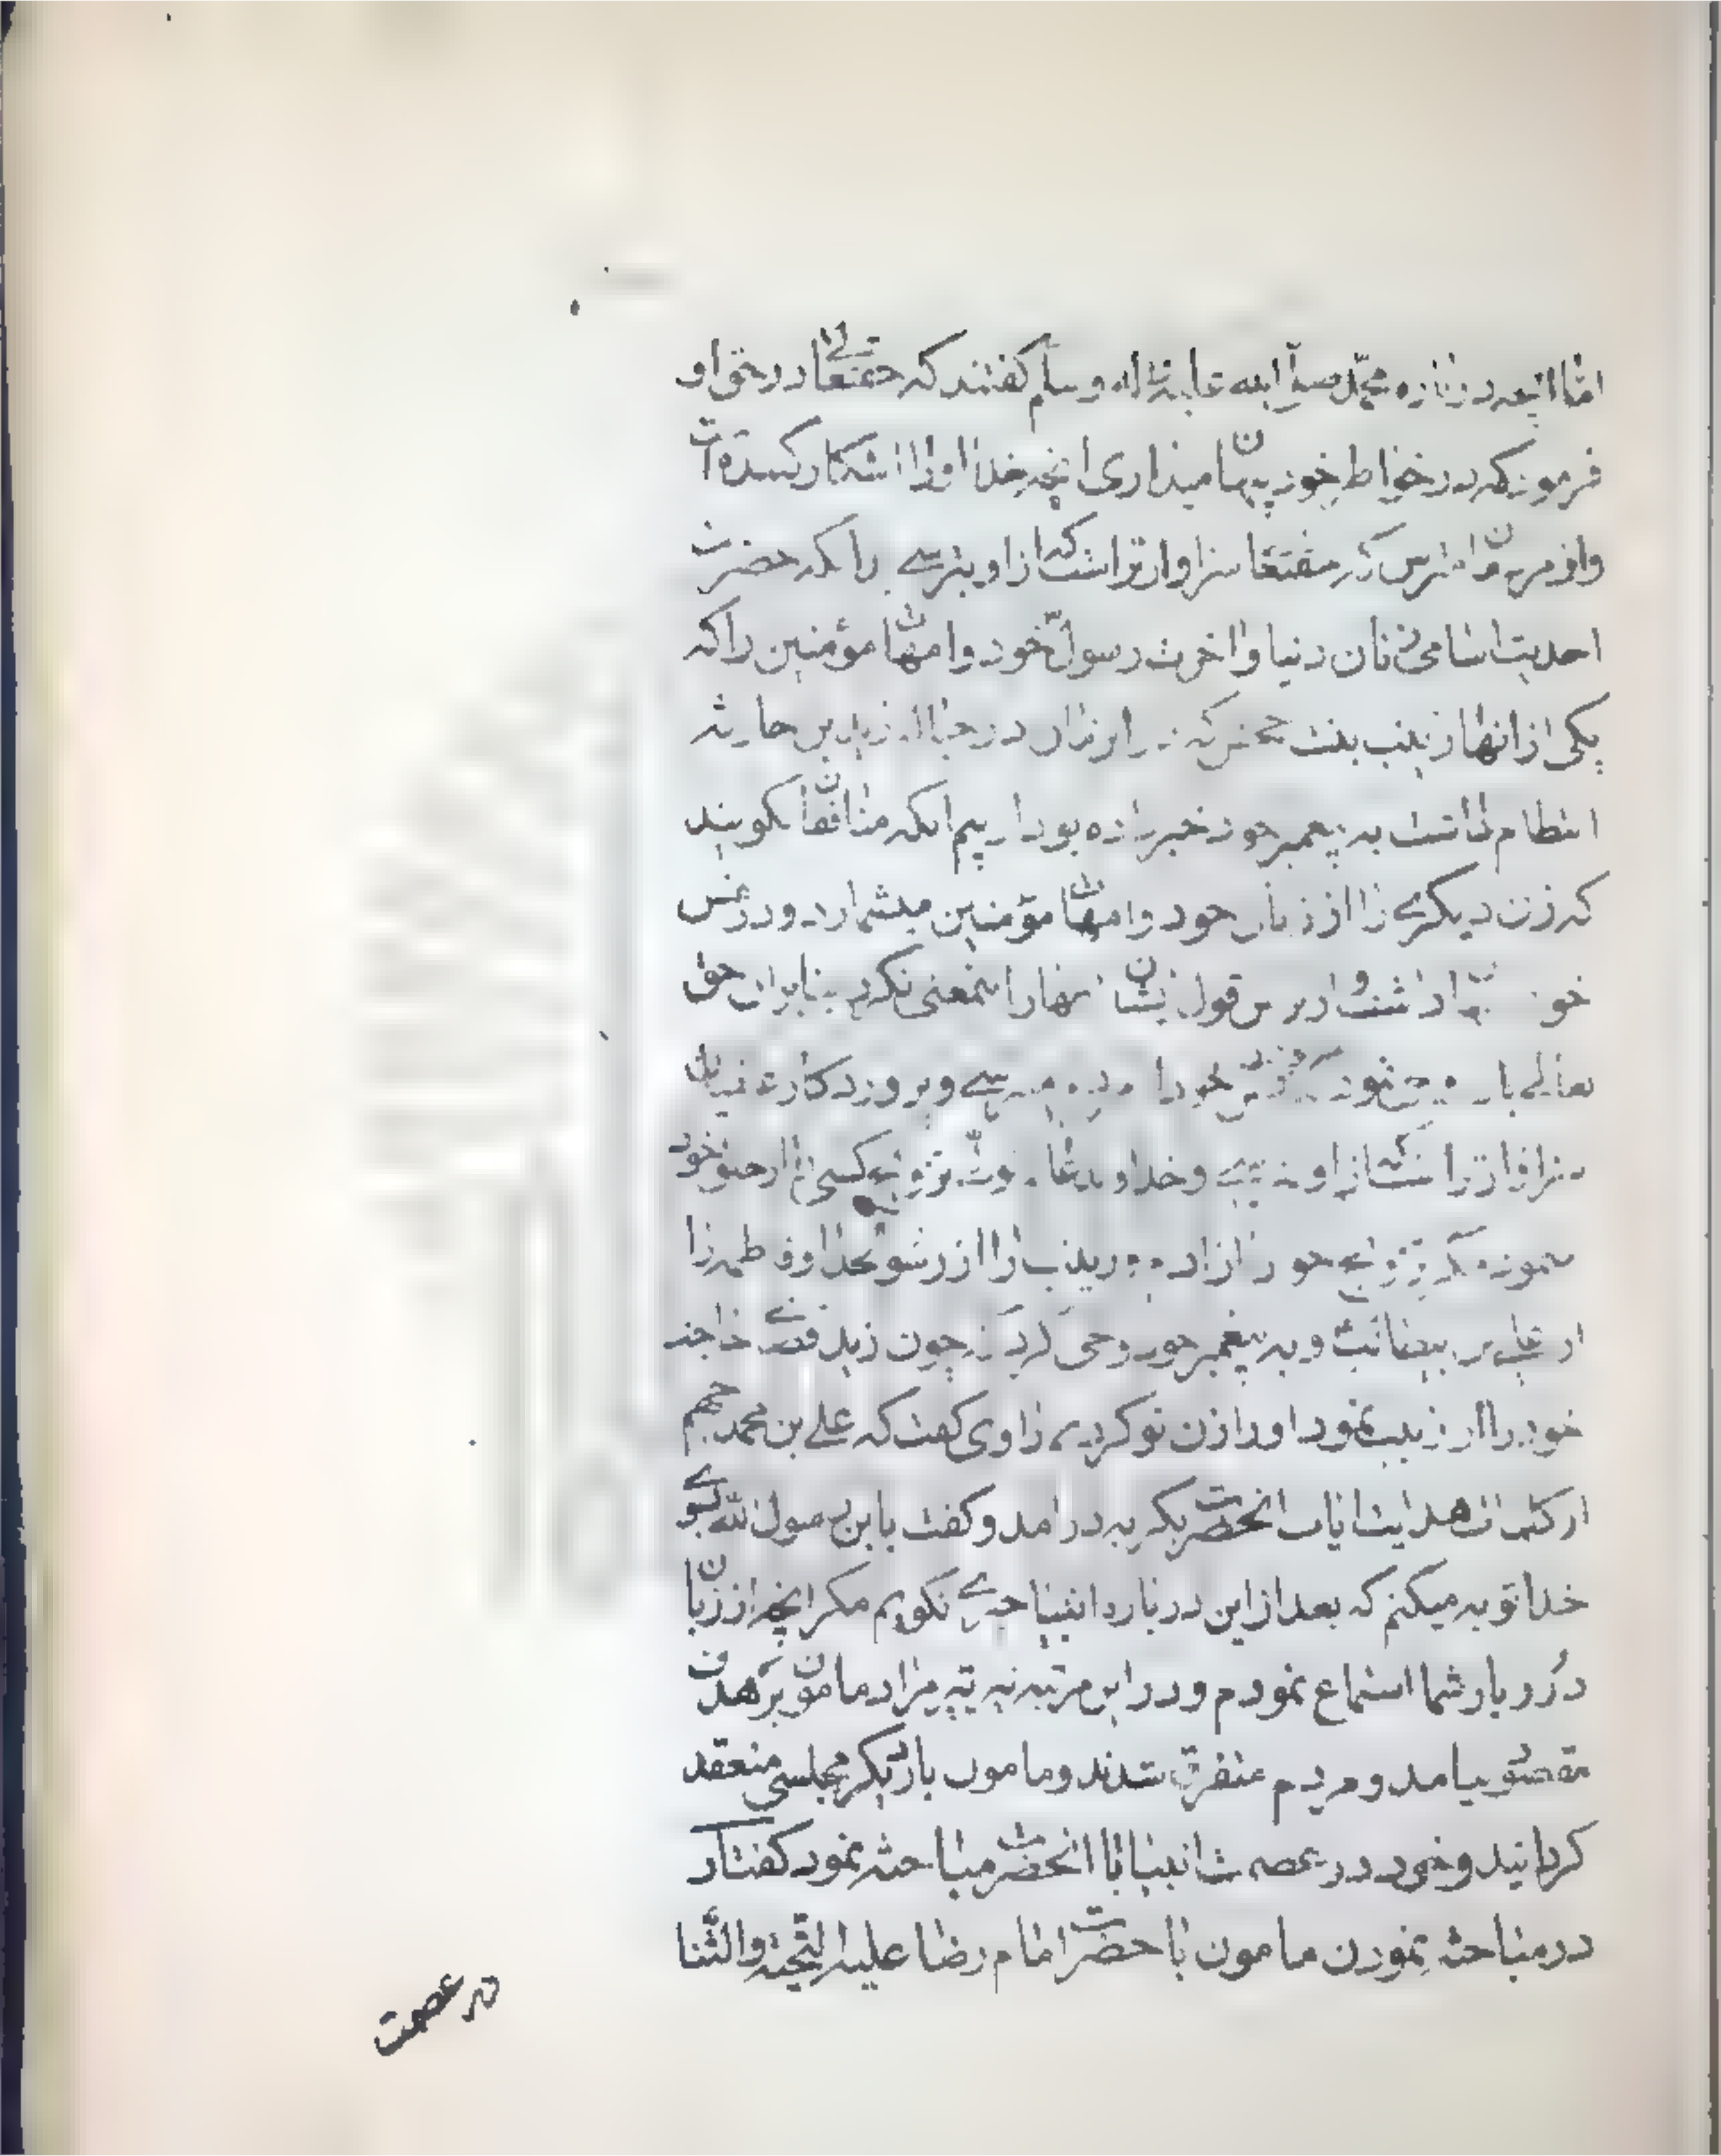 اما انچه در باره محمد صلی الله علیه و اله و سلم کفتند که حقتعالی در حق او
فرموده که در خواطر خود پنهان میداری انچه خدا اورا اشکار کننده است
واز مردمان مترس که حقتعا سزاوارتر است که ازاو بترسے بدانکه حضرت
احدیت اسامی زنان دنیا و اخرت رسول خود وامهات مؤمنین راکه
یکی ازانها زینب بنت جحش که در انزمان در حباله زید بن حارثه
انتظام داشت به پیغمبر خود خبر داده بود از بیم انکه منافقان نکویند
که زن دیکرے را از زنان خود وامهات مؤمنین میشمارد و در نفس
خود داشت و از ترس قول ایشان اظهار اینمعنی نکرد بنابران حق
تعالے باو
سزاوارتر است که ازاو بترسے وخداوند تعا تزویج کسی از خلق خود
ننموده مکر تزویج حوا از ادم و زینب را از رسولخدا و فاطمه را
از علے بن ابیطالب و به پیغمبر خود وحی کرد که چون زید قضاے حاجت
خود را از زینب نمود اورا زن تو کردیم راوی کفت که علے بن محمد جهم
از کلمات هدایت ایات انحضرت بکریه در امد و کفت یابن رسول الله بسوے
خدا توبه میکنم که بعد ازاین در باره انبیا چیزے نکویم مکر انچه از زبان
دُرر بار شما استماع نمودم و در این مرتبه نیز تیر مراد مامون بر هدف
مقصود نیامد و مردم متفرق شدند و مامون بار دیکر مجلسی منعقد
کردانید و خود در عصمت انبیا با انحضرت مباحثه نمود کفتار
در مباحثه نمودن مامون با حضرت امام رضا علیه التحیة والثنا
در عصمت